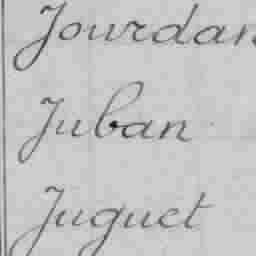 Jourdan
Juban
Juguet